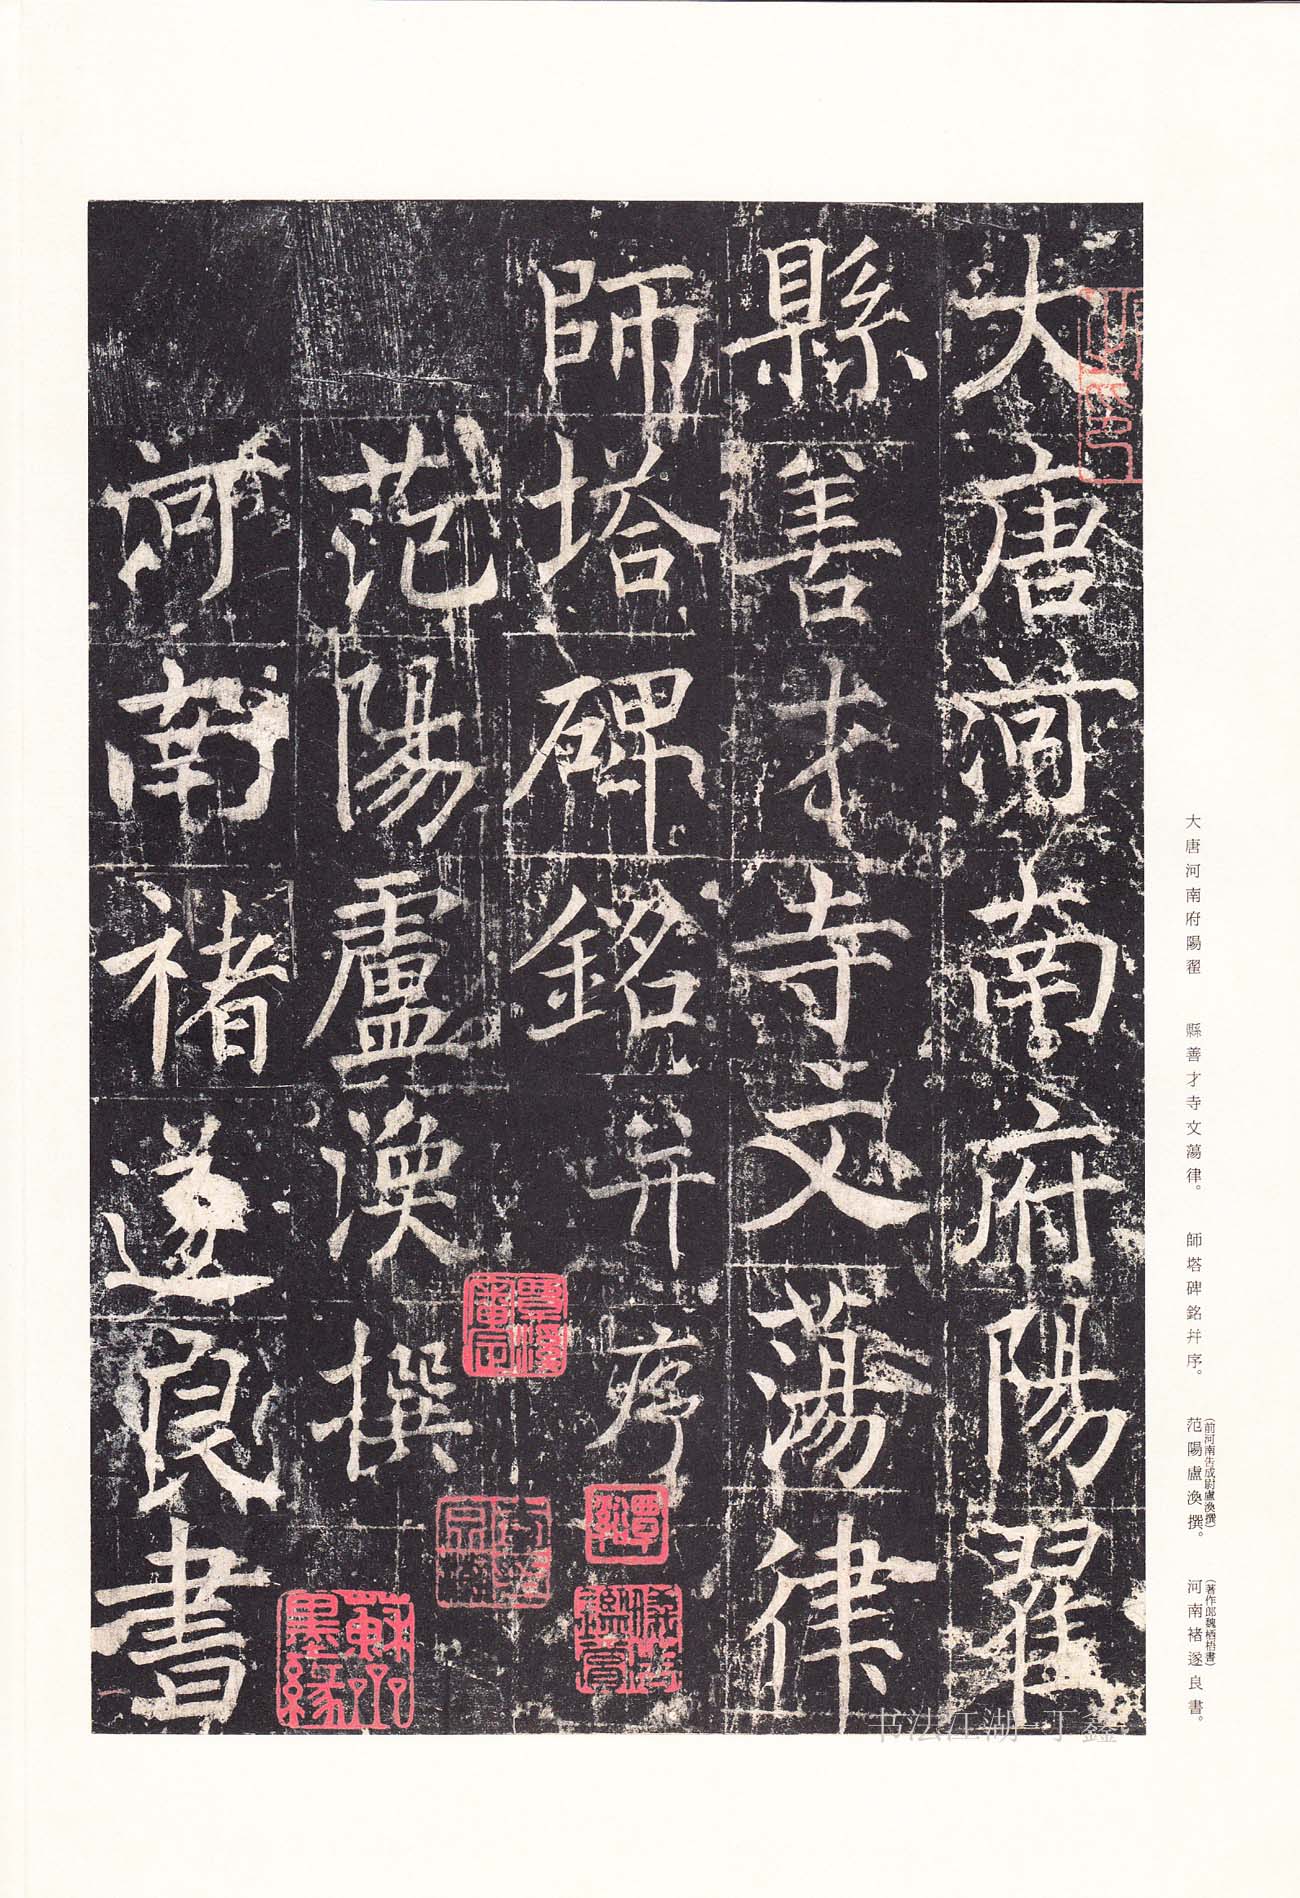 大唐河南府陽翟
縣善才寺文蕩律
師塔碑銘并序
范陽盧渙撰
河南褚遂良書
覃溪審定
蘇齋墨緣
大唐河南府陽翟　縣善才寺文蕩律。　師塔碑銘幷序。　范陽盧渙撰。　河南褚遂良書。
(前河南告成尉盧渙撰)
(著作郎魏栖梧書)
书法江湖-丁鑫